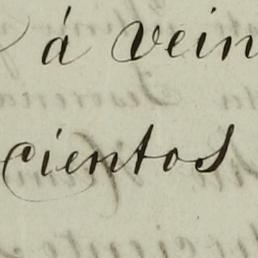 á vein
cientos